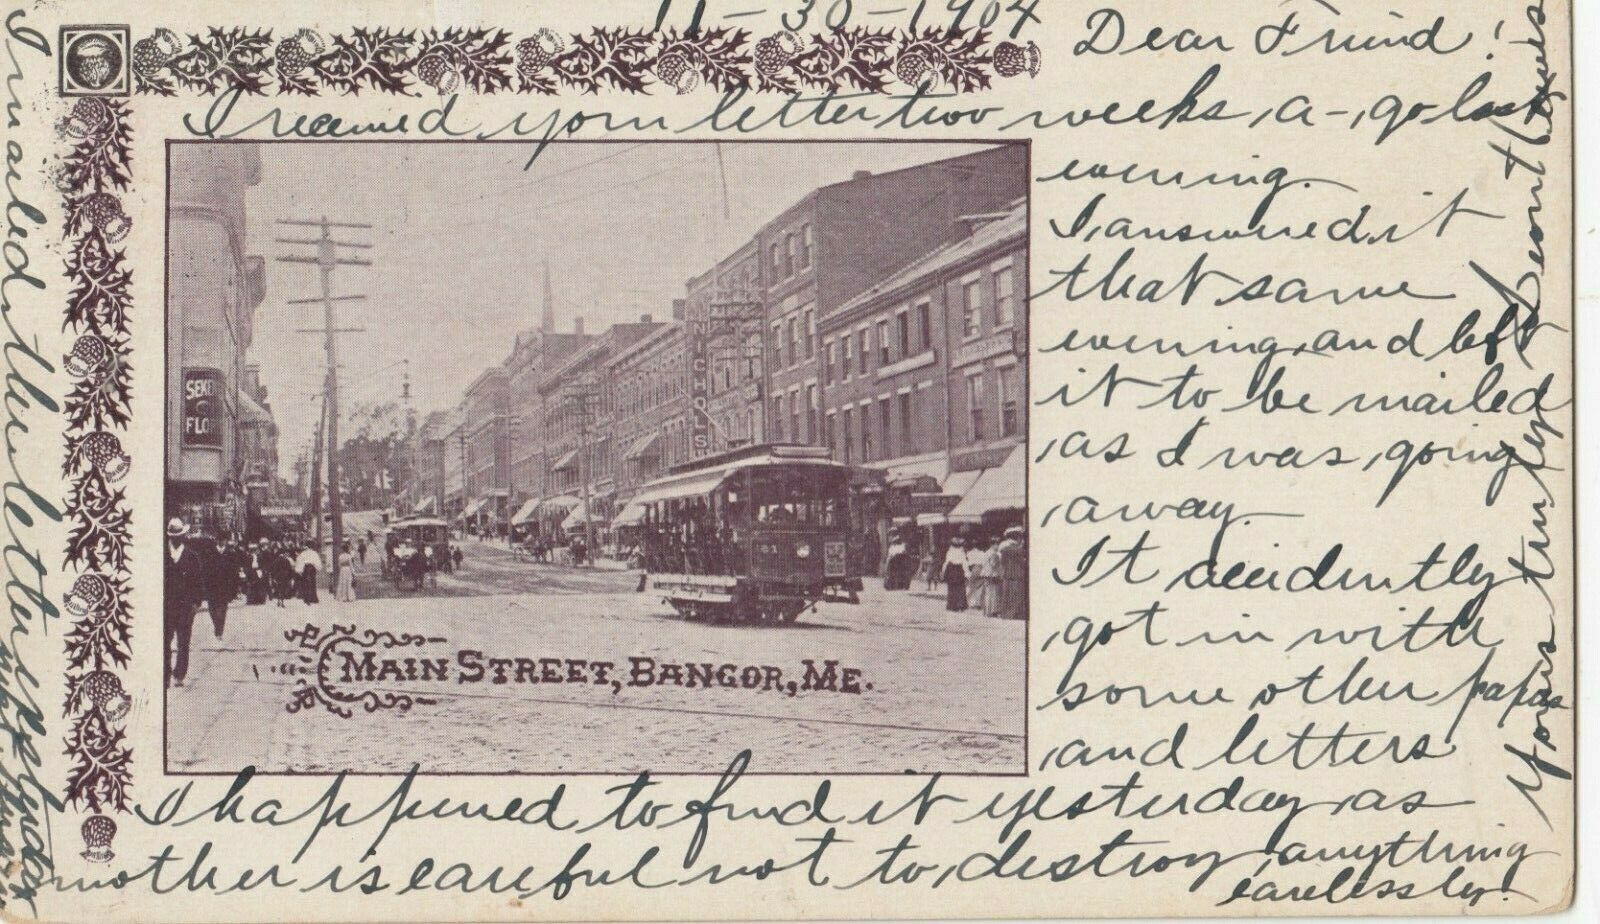 11-30-1904
Dear Friend!
I received your letter two weeks, a-, go last
evening.
I, answered it
that same
evening, and left
it to be mailed
as I was, going
away.
It accidently
got in with
some other papers
and letters
I happened to find it yesterday, as
mother is careful not to, destroy, anything
carelessly.
I mailed the letter
Yours truly
NICHOLS
MAIN STREET, BANGOR, ME.